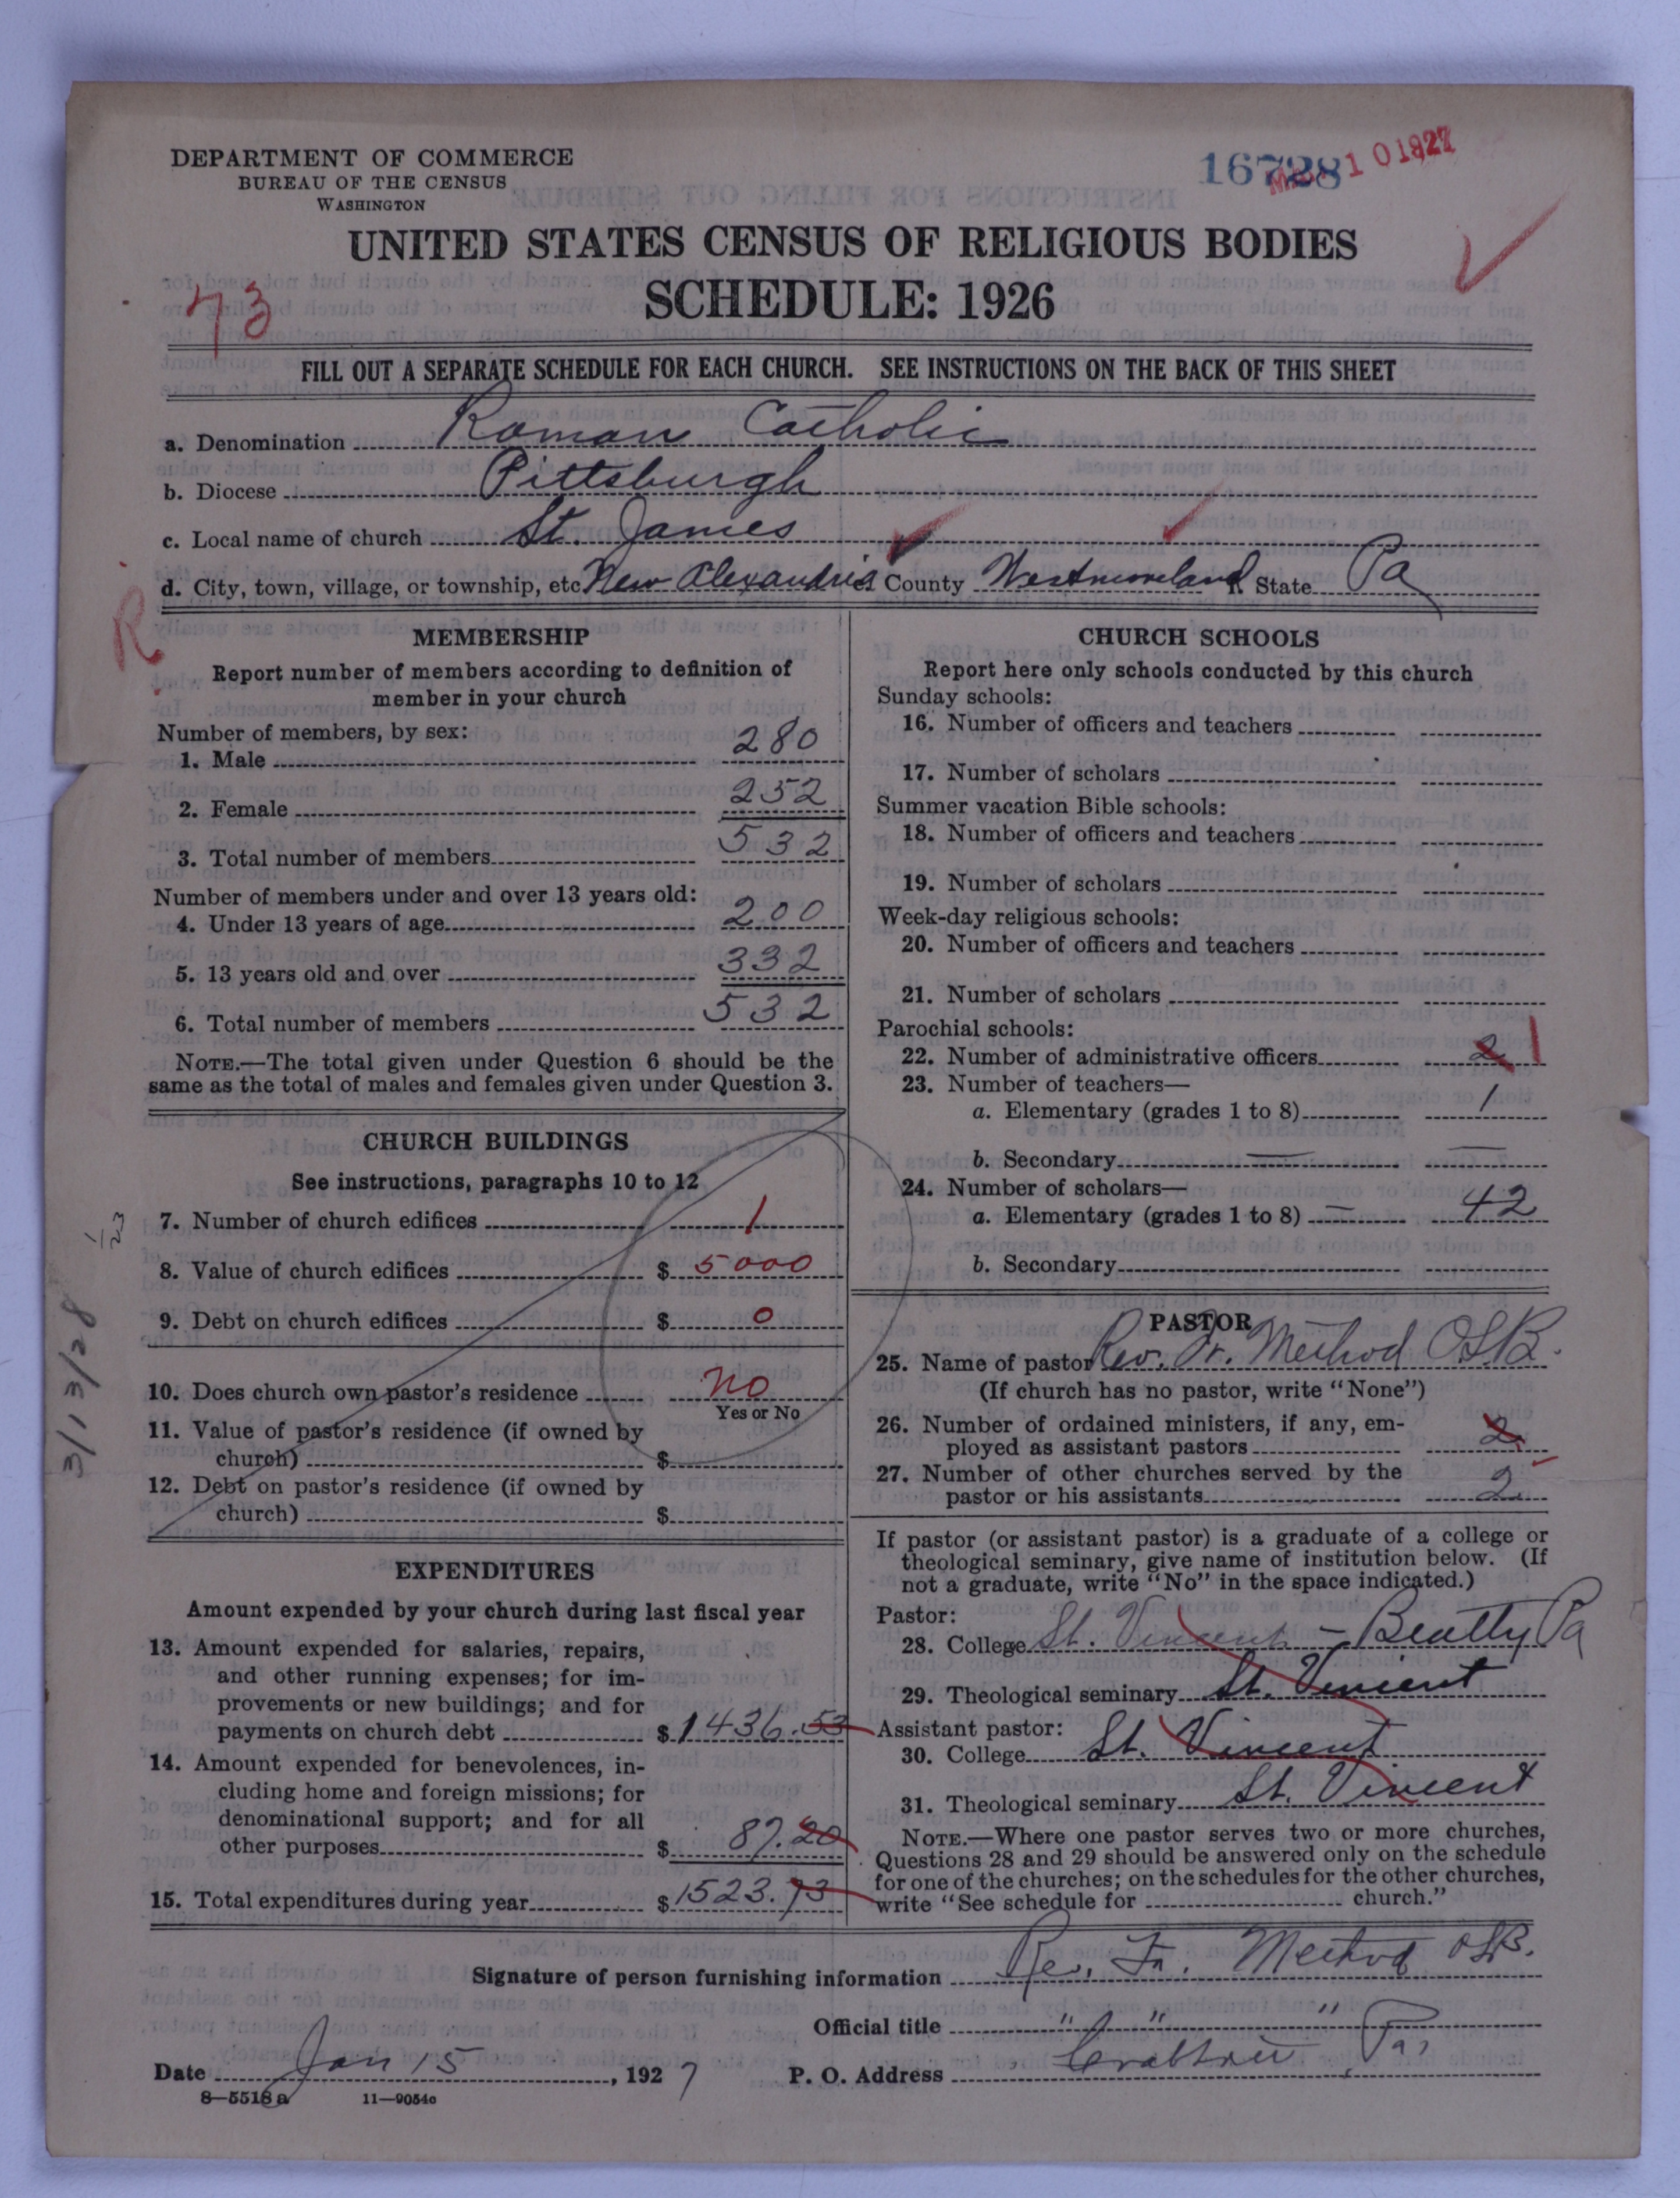 DEPARTMENT OF COMMERCE
BUREAU OF THE CENSUS
WASHINGTON
16728
10 1927
UNITED STATES CENSUS OF RELIGIOUS BODIES
SCHEDULE: 1926
73
FILL OUT A SEPARATE SCHEDULE FOR EACH CHURCH. SEE INSTRUCTIONS ON THE BACK OF THIS SHEET
a. Denomination Roman Catholic
b. Diocese Pittsburgh
c. Local name of church St. James
d. City, town, village, or township, etc. New Alexandria County Westmoreland R State Pa
R
MEMBERSHIP
Report number of members according to definition of
member in your church
Number of members, by sex:
1. Male 280
2. Female 252
3. Total number of members 532
Number of members under and over 13 years old:
4. Under 13 years of age 200
5. 13 years old and over 332
6. Total number of members 532
NOTE.—The total given under Question 6 should be the
same as the total of males and females given under Question 3.
CHURCH BUILDINGS
See instructions, paragraphs 10 to 12
7. Number of church edifices 1
8. Value of church edifices $ 5000
9. Debt on church edifices $ 0
10. Does church own pastor's residence no
Yes or No
11. Value of pastor's residence (if owned by
church) $
12. Debt on pastor's residence (if owned by
church) $
3/13/28
1/23
EXPENDITURES
Amount expended by your church during last fiscal year
13. Amount expended for salaries, repairs,
and other running expenses; for im-
provements or new buildings; and for
payments on church debt $ 1436.53
14. Amount expended for benevolences, in-
cluding home and foreign missions; for
denominational support; and for all
other purposes $ 87.20
15. Total expenditures during year $ 1523.73
CHURCH SCHOOLS
Report here only schools conducted by this church
Sunday schools:
16. Number of officers and teachers
17. Number of scholars
Summer vacation Bible schools:
18. Number of officers and teachers
19. Number of scholars
Week-day religious schools:
20. Number of officers and teachers
21. Number of scholars
Parochial schools:
22. Number of administrative officers 2 1
23. Number of teachers—
a. Elementary (grades 1 to 8) 1
b. Secondary —
24. Number of scholars—
a. Elementary (grades 1 to 8) — 42
b. Secondary
PASTOR
25. Name of pastor Rev. Fr. Method OSB.
(If church has no pastor, write "None")
26. Number of ordained ministers, if any, em-
ployed as assistant pastors 2
27. Number of other churches served by the
pastor or his assistants 2
If pastor (or assistant pastor) is a graduate of a college or
theological seminary, give name of institution below. (If
not a graduate, write "No" in the space indicated.)
Pastor:
28. College St. Vincent - Beatty Pa
29. Theological seminary St. Vincent
Assistant pastor:
30. College St. Vincent
31. Theological seminary St. Vincent
NOTE.—Where one pastor serves two or more churches,
Questions 28 and 29 should be answered only on the schedule
for one of the churches; on the schedules for the other churches,
write "See schedule for church."
Signature of person furnishing information Rev. Fr. Method OSB.
Official title " " "
Date Jan 15, 1927 P. O. Address Crabtree, Pa.
8—5518 a 11—9054c